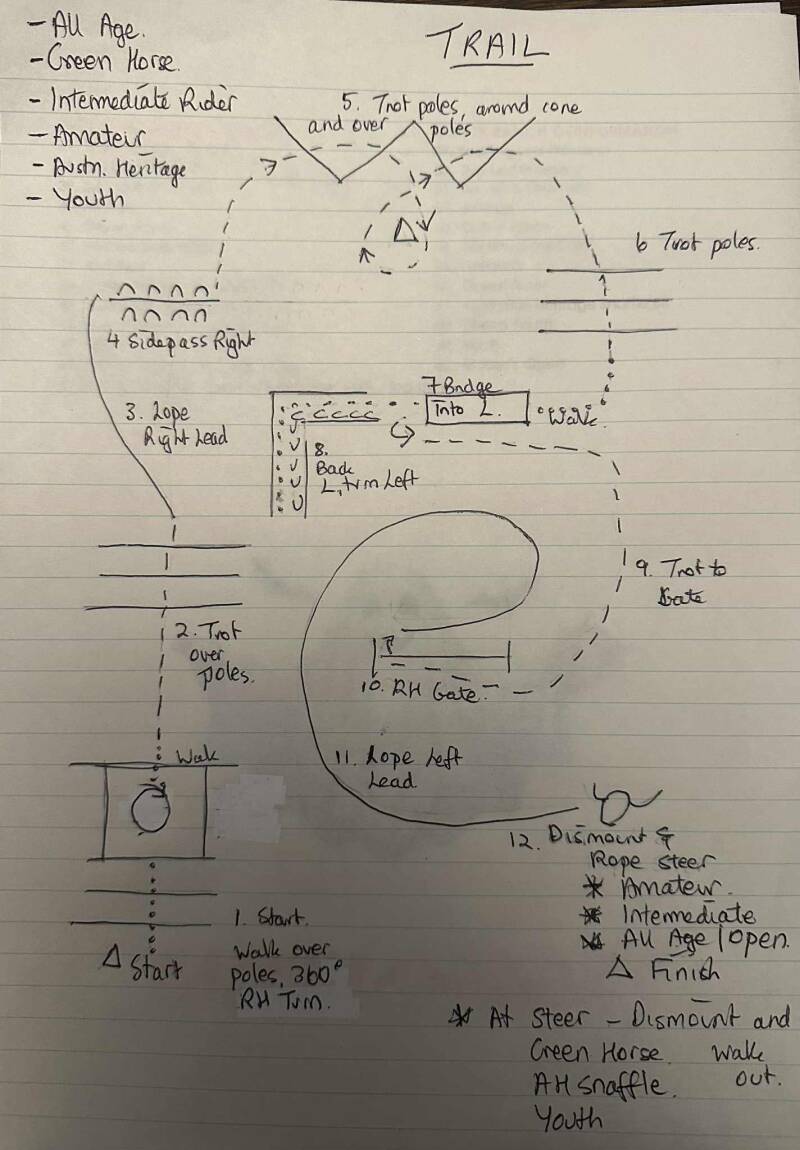 TRAIL
- All Age.
- Green Horse.
- Intermediate Rider
- Amateur
- Austn. Heritage
- Youth
5. Trot poles, around cone
and over poles
6 Trot poles.
4 Sidepass Right
3. Lope
Right Lead
7 Bridge
Into L.
Walk.
8.
Back
L, turn Left
9. Trot to
Gate
2. Trot
over
poles.
10. RH Gate.
11. Lope Left
Lead
Walk
12. Dismount &
Rope steer
* Amateur.
* Intermediate
* All Age / Open.
Finish
1. Start.
Walk over
poles, 360°
RH Turn.
Start
* At steer - Dismount and
Green Horse. walk
AH snaffle. out.
Youth